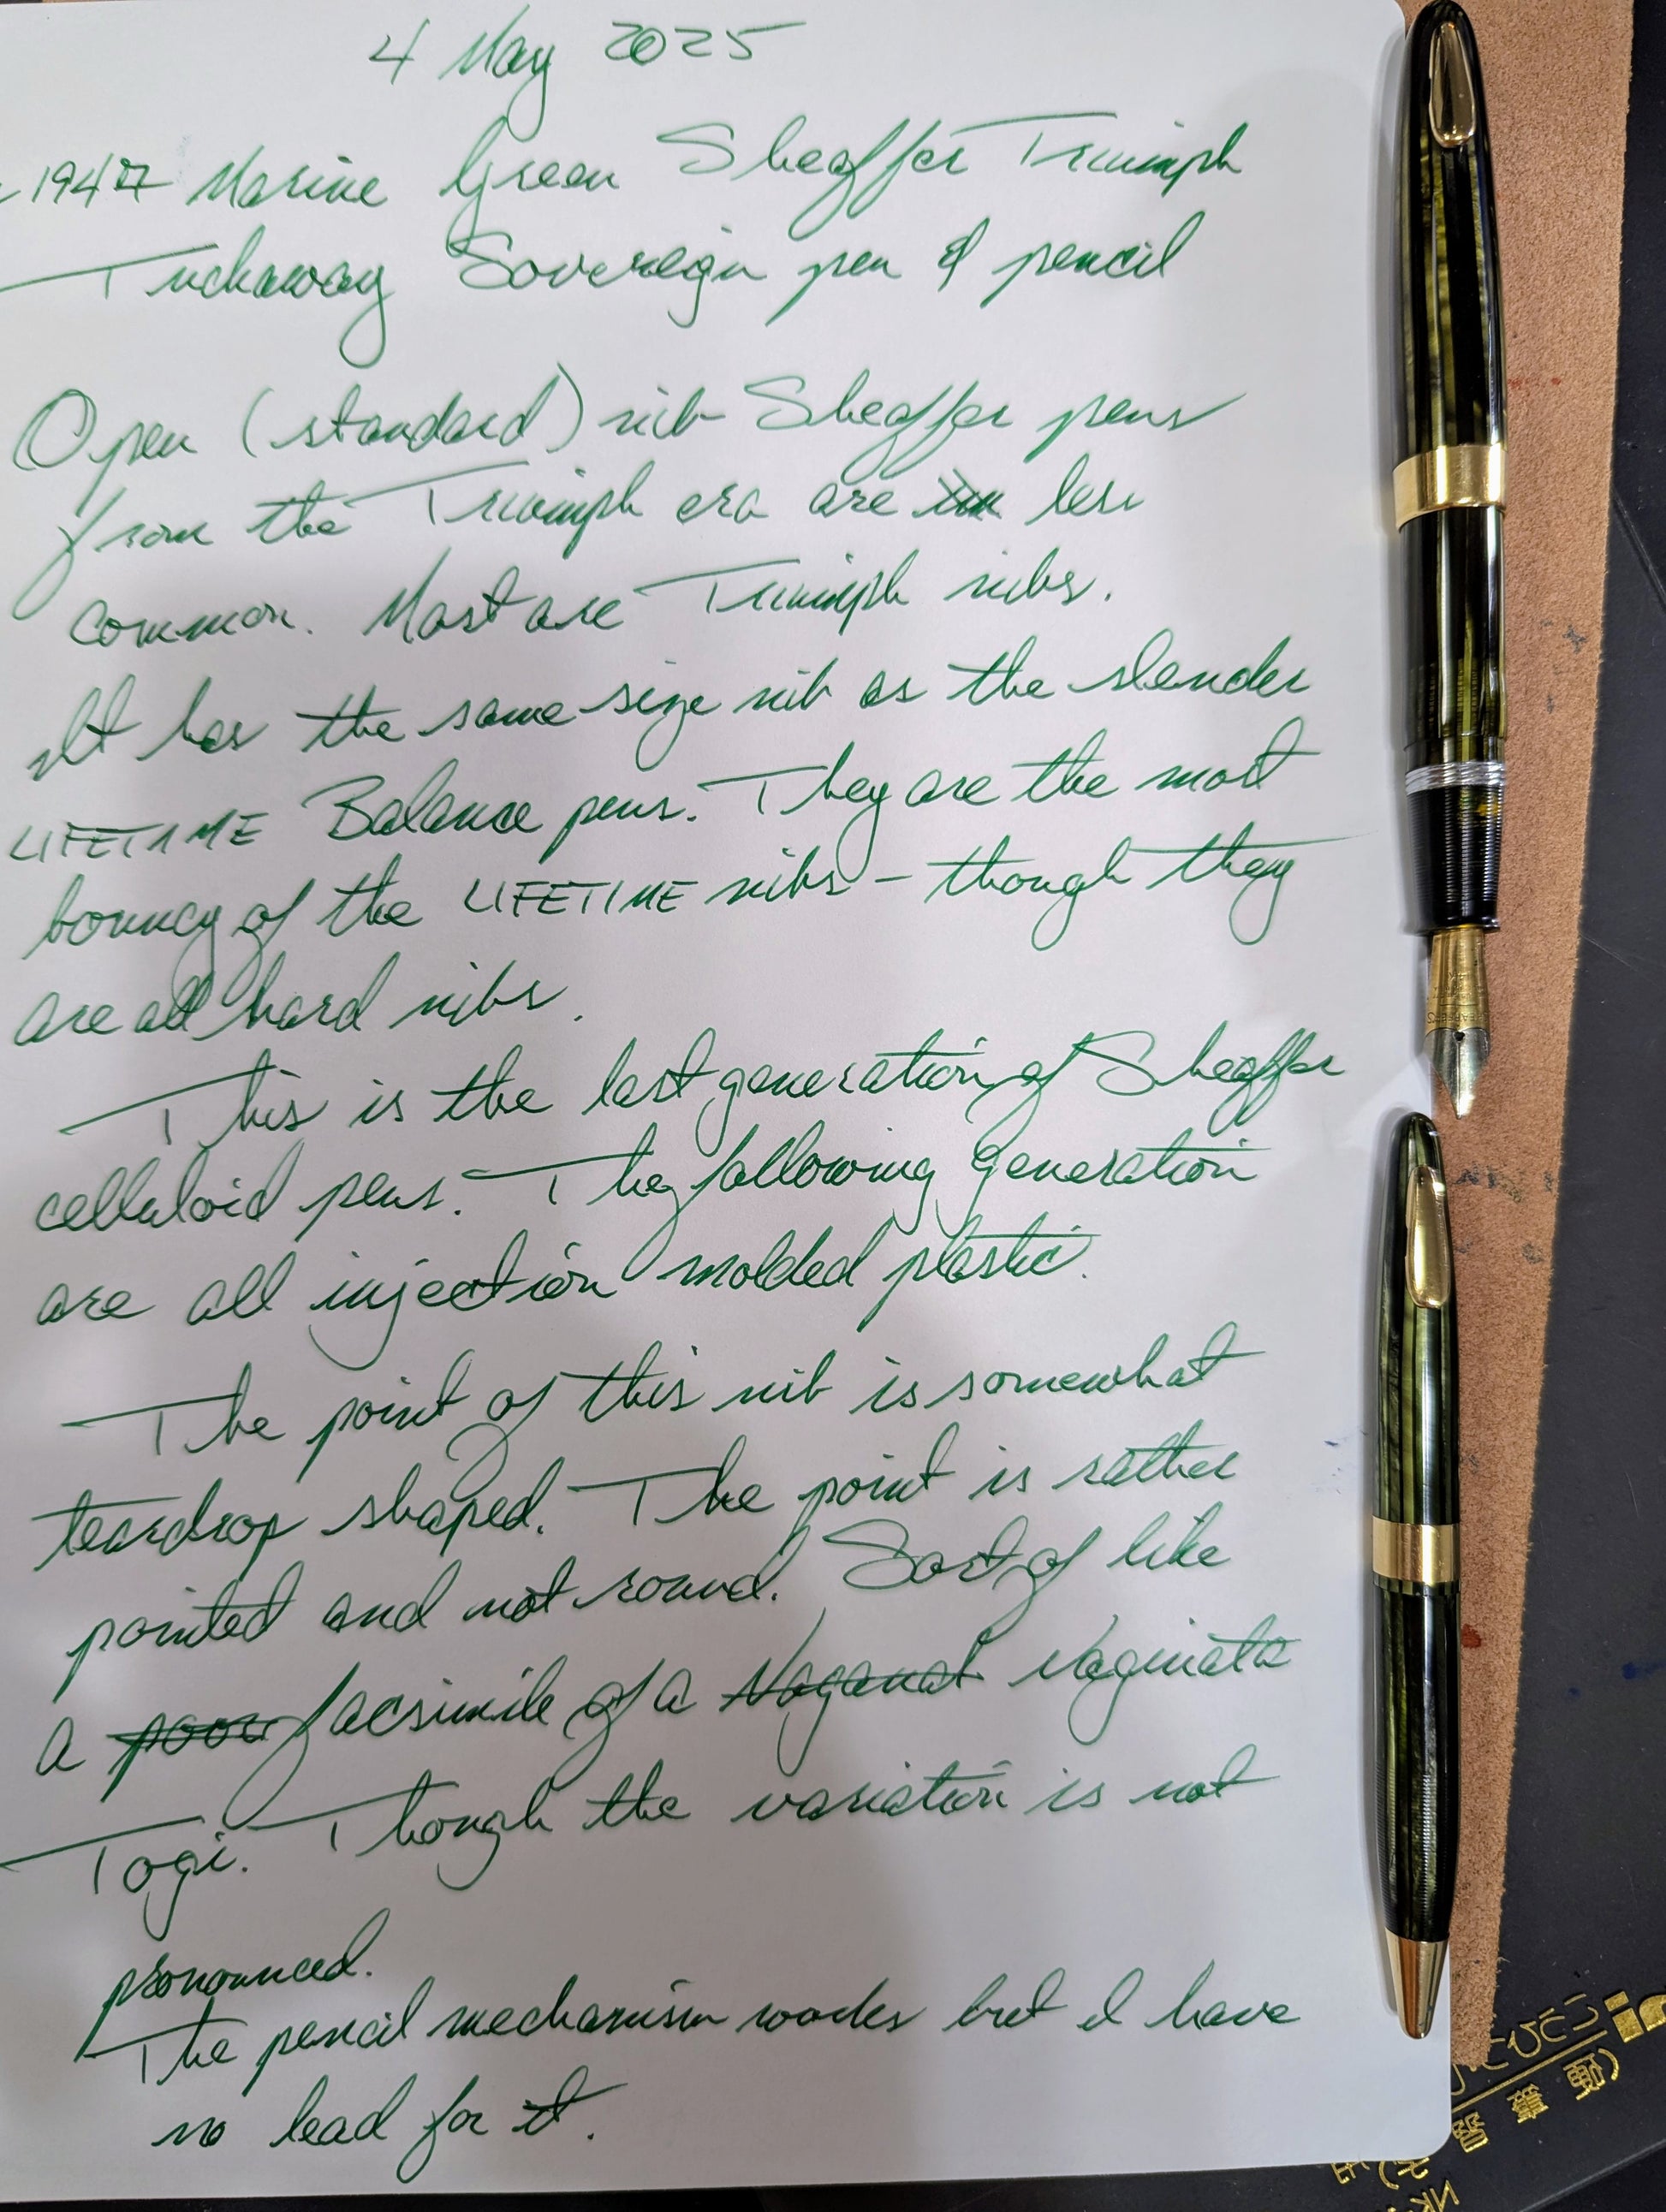 4 May 2025
~ 1947 Marine Green Sheaffer Triumph
Tuckaway Sovereign pen & pencil
Open (standard) nib Sheaffer pens
from the Triumph era are less
common. Most are Triumph nibs.
It has the same size nib as the slender
LIFETIME Balance pens. They are the most
bouncy of the LIFETIME nibs - though they
are all hard nibs.
This is the last generation of Sheaffer
celluloid pens. The following generation
are all injection molded plastic.
The point of this nib is somewhat
teardrop shaped. The point is rather
pointed and not round. Sort of like
a poor facsimile of a Naganat Naginata
Togi. Though the variation is not
pronounced.
The pencil mechanism works but I have
no lead for it.
(硬筆習